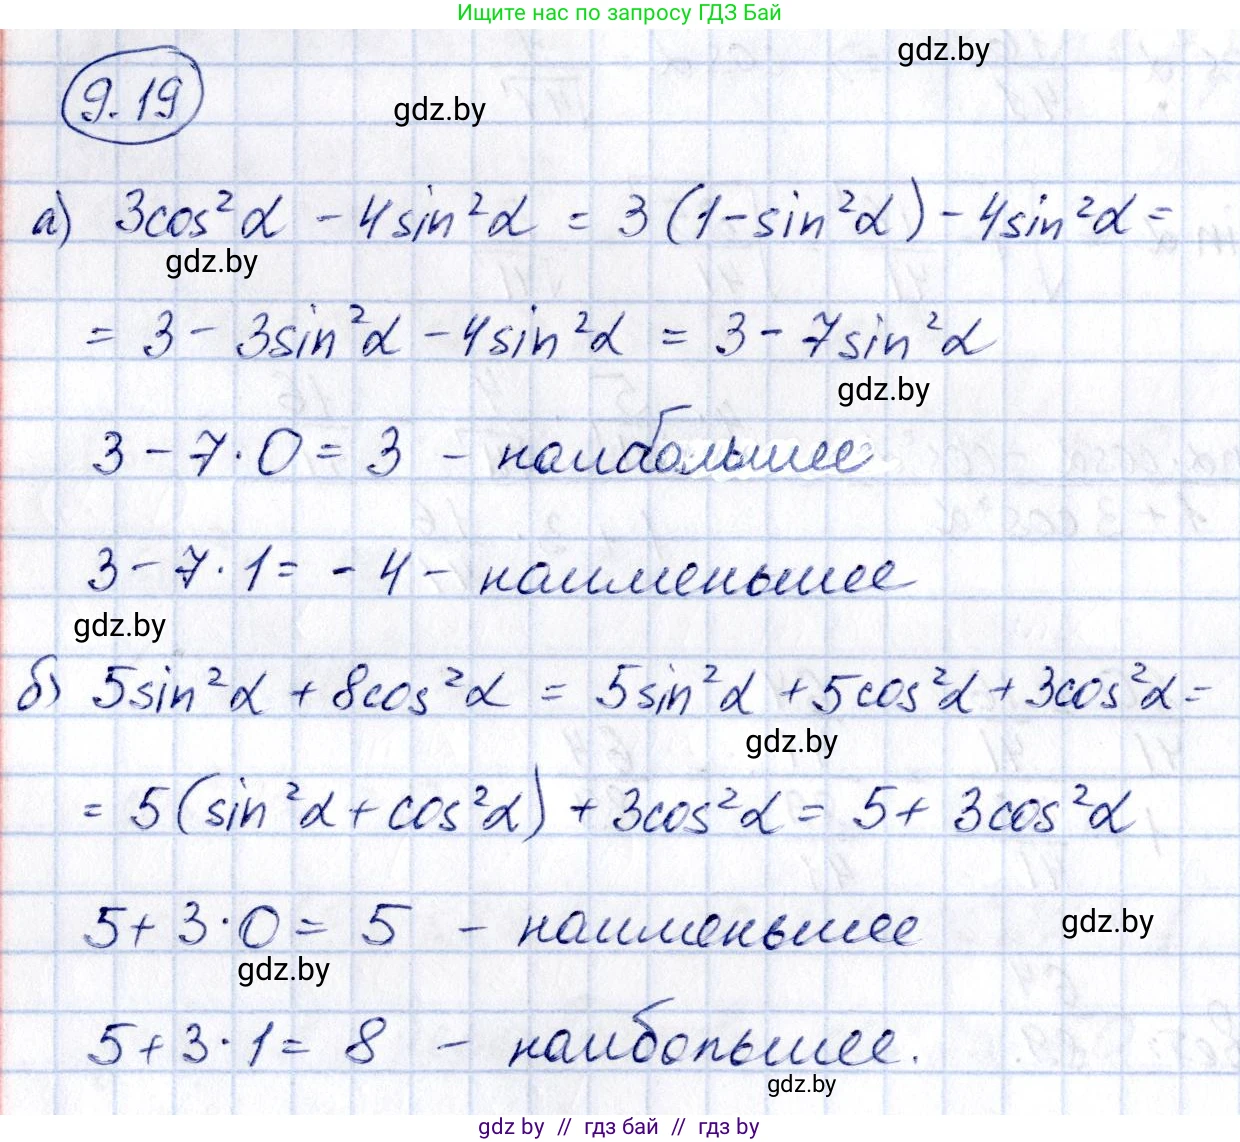 Ищите нас по запросу ГДЗ Бай
gdz.by
9.19
gdz.by
а) 3cos²α - 4sin²α = 3(1-sin²α) - 4sin²α =
gdz.by
= 3 - 3sin²α - 4sin²α = 3 - 7sin²α
gdz.by
3 - 7·0 = 3 - наибольшее
3 - 7·1 = -4 - наименьшее
gdz.by
б) 5sin²α + 8cos²α = 5sin²α + 5cos²α + 3cos²α =
gdz.by
= 5(sin²α + cos²α) + 3cos²α = 5 + 3cos²α
5 + 3·0 = 5 - наименьшее
gdz.by
gdz.by
5 + 3·1 = 8 - наибольшее.
gdz.by
gdz by // гдз бай // гдз by